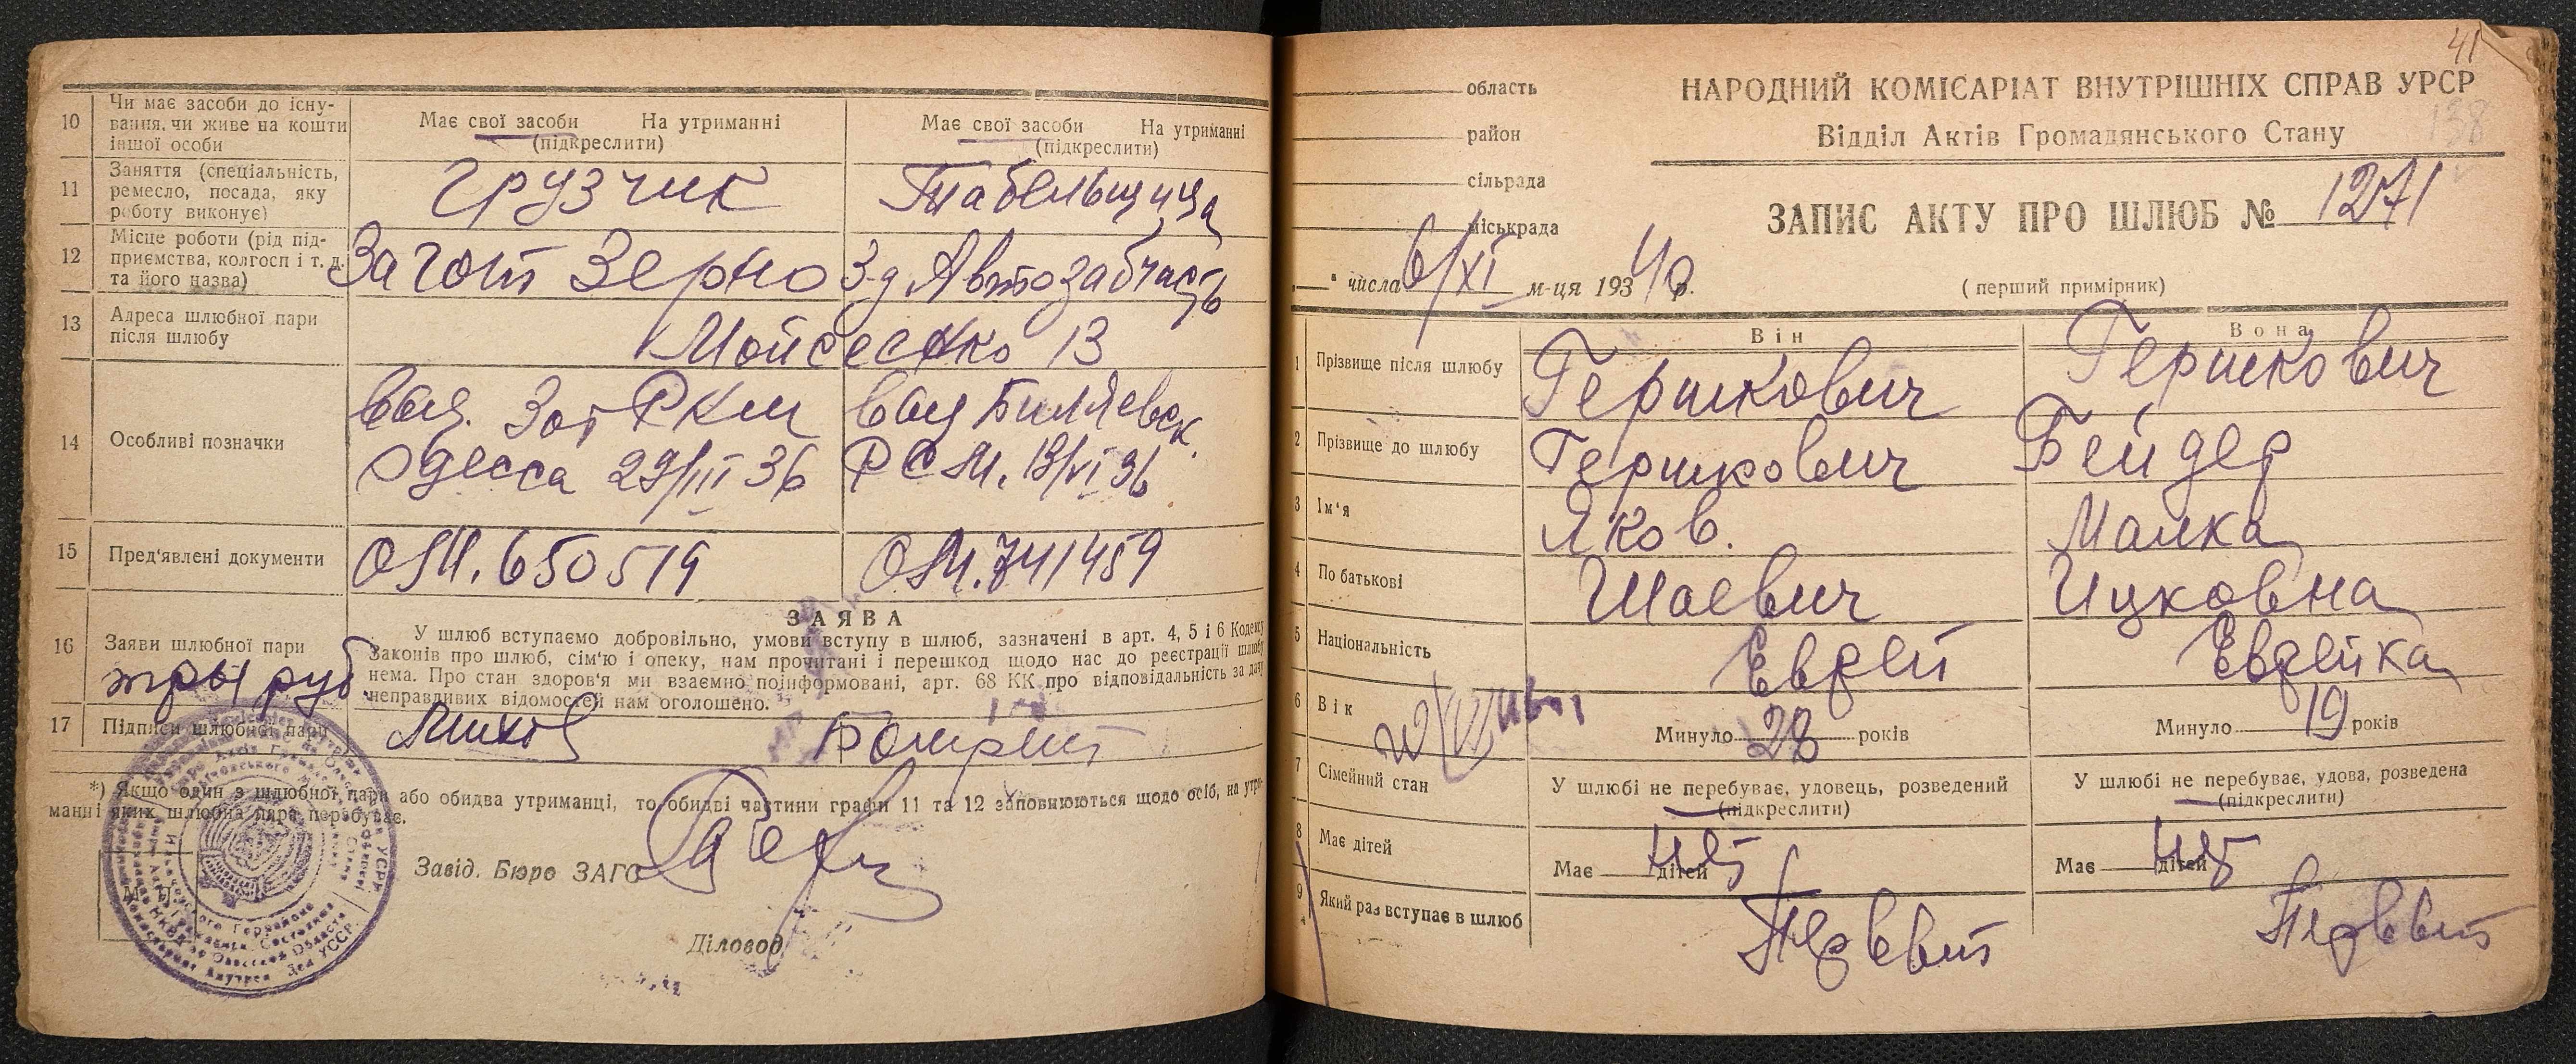 10 Чи має засоби до існу-
вання, чи живе на кошти
іншої особи
Має свої засоби На утриманні
(підкреслити)
Має свої засоби На утриманні
(підкреслити)
11 Заняття (спеціальність,
ремесло, посада, яку
роботу виконує)
Грузчик
Табельщица
12 Місце роботи (рід під-
приємства, колгосп і т. д.
та його назва)
Загот Зерно
З-д Автозабчасть
13 Адреса шлюбної пари
після шлюбу
Мойсеенко 13
14 Особливі позначки
Выд. 3 от РКМ
Одесса 29/III 36
выд Биляевск.
РСМ. 13/VI 36
15 Пред'явлені документи
ОЯМ. 650519
ОЯМ. 741459
16 Заяви шлюбної пари
три руб.
ЗАЯВА
У шлюб вступаємо добровільно, умови вступу в шлюб, зазначені в арт. 4, 5 і 6 Кодексу
Законів про шлюб, сім'ю і опеку, нам прочитані і перешкод щодо нас до реєстрації шлюбу
нема. Про стан здоров'я ми взаємно поінформовані, арт. 68 КК про відповідальність за дачу
неправдивих відомостей нам оголошено.
17 Підписи шлюбної пари
*) Якщо один з шлюбної пари або обидва утриманці, то обидві частини графи 11 та 12 заповнюються щодо осіб, на утри-
манні яких шлюбна пара перебуває.
Завід. Бюро ЗАГС
М. П.
Діловод
41
138
область
район
сільрада
міськрада
" числа 6/XI м-ця 193 40 р.
НАРОДНИЙ КОМІСАРІАТ ВНУТРІШНІХ СПРАВ УРСР
Відділ Актів Громадянського Стану
ЗАПИС АКТУ ПРО ШЛЮБ № 1271
(перший примірник)
Він
Вона
1 Прізвище після шлюбу
Гершкович
Гершкович
2 Прізвище до шлюбу
Гершкович
Бейдер
3 Ім'я
Яков.
Малка
4 По батькові
Шаевич
Ицковна
5 Національність
Еврей
Еврейка
6 Вік
Минуло 28 років
Минуло 19 років
7 Сімейний стан
У шлюбі не перебуває, удовець, розведений
(підкреслити)
У шлюбі не перебуває, удова, розведена
(підкреслити)
8 Має дітей
Має нет дітей
Має нет дітей
9 Який раз вступає в шлюб
Первый
Первый